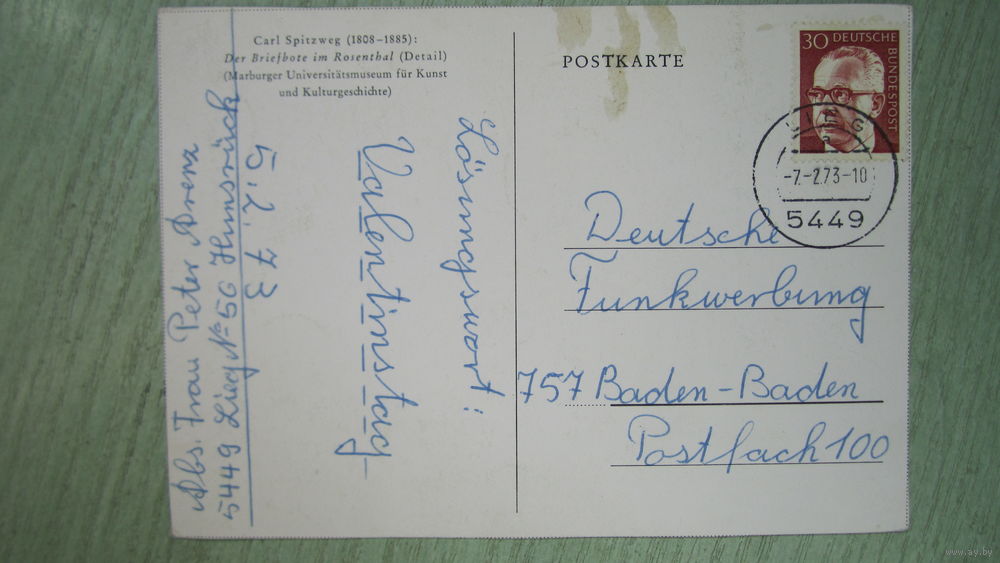 Carl Spitzweg (1808–1885):
Der Briefbote im Rosenthal (Detail)
(Marburger Universitätsmuseum für Kunst
und Kulturgeschichte)
POSTKARTE
30 DEUTSCHE
BUNDESPOST
LIEG
a
-7.-2.73-10
5449
Lösungswort:
Valentinstag
5. 2. 73
Abs. Frau Peter Arenz
5449 Lieg No 56 Hunsrück
Deutsche
Funkwerbung
757 Baden-Baden
Postfach 100
www.ay.by